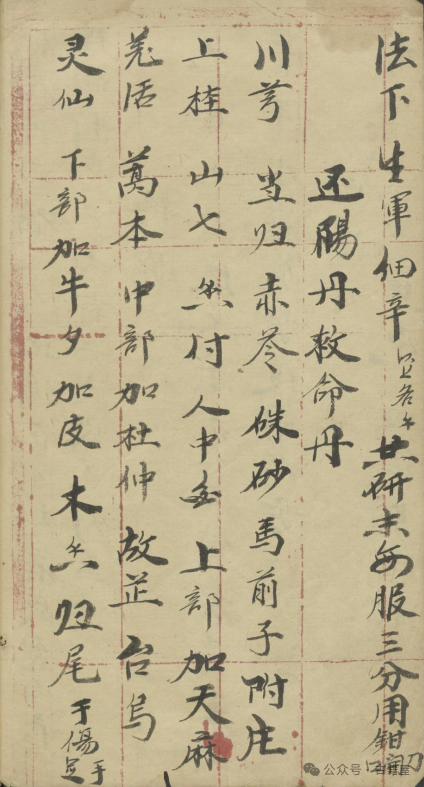 法下 生軍 细辛 以上各 共研末每服三分用鉗口
还陽丹救命丹
川芎 当归 赤苓 硃砂 馬前子 附庄
上桂 山七 付 人中 上部加天麻
羌活 萬本 中部加杜仲 故正 台烏
灵仙 下部加牛夕 加皮 木 归尾 于傷 手足
公众号